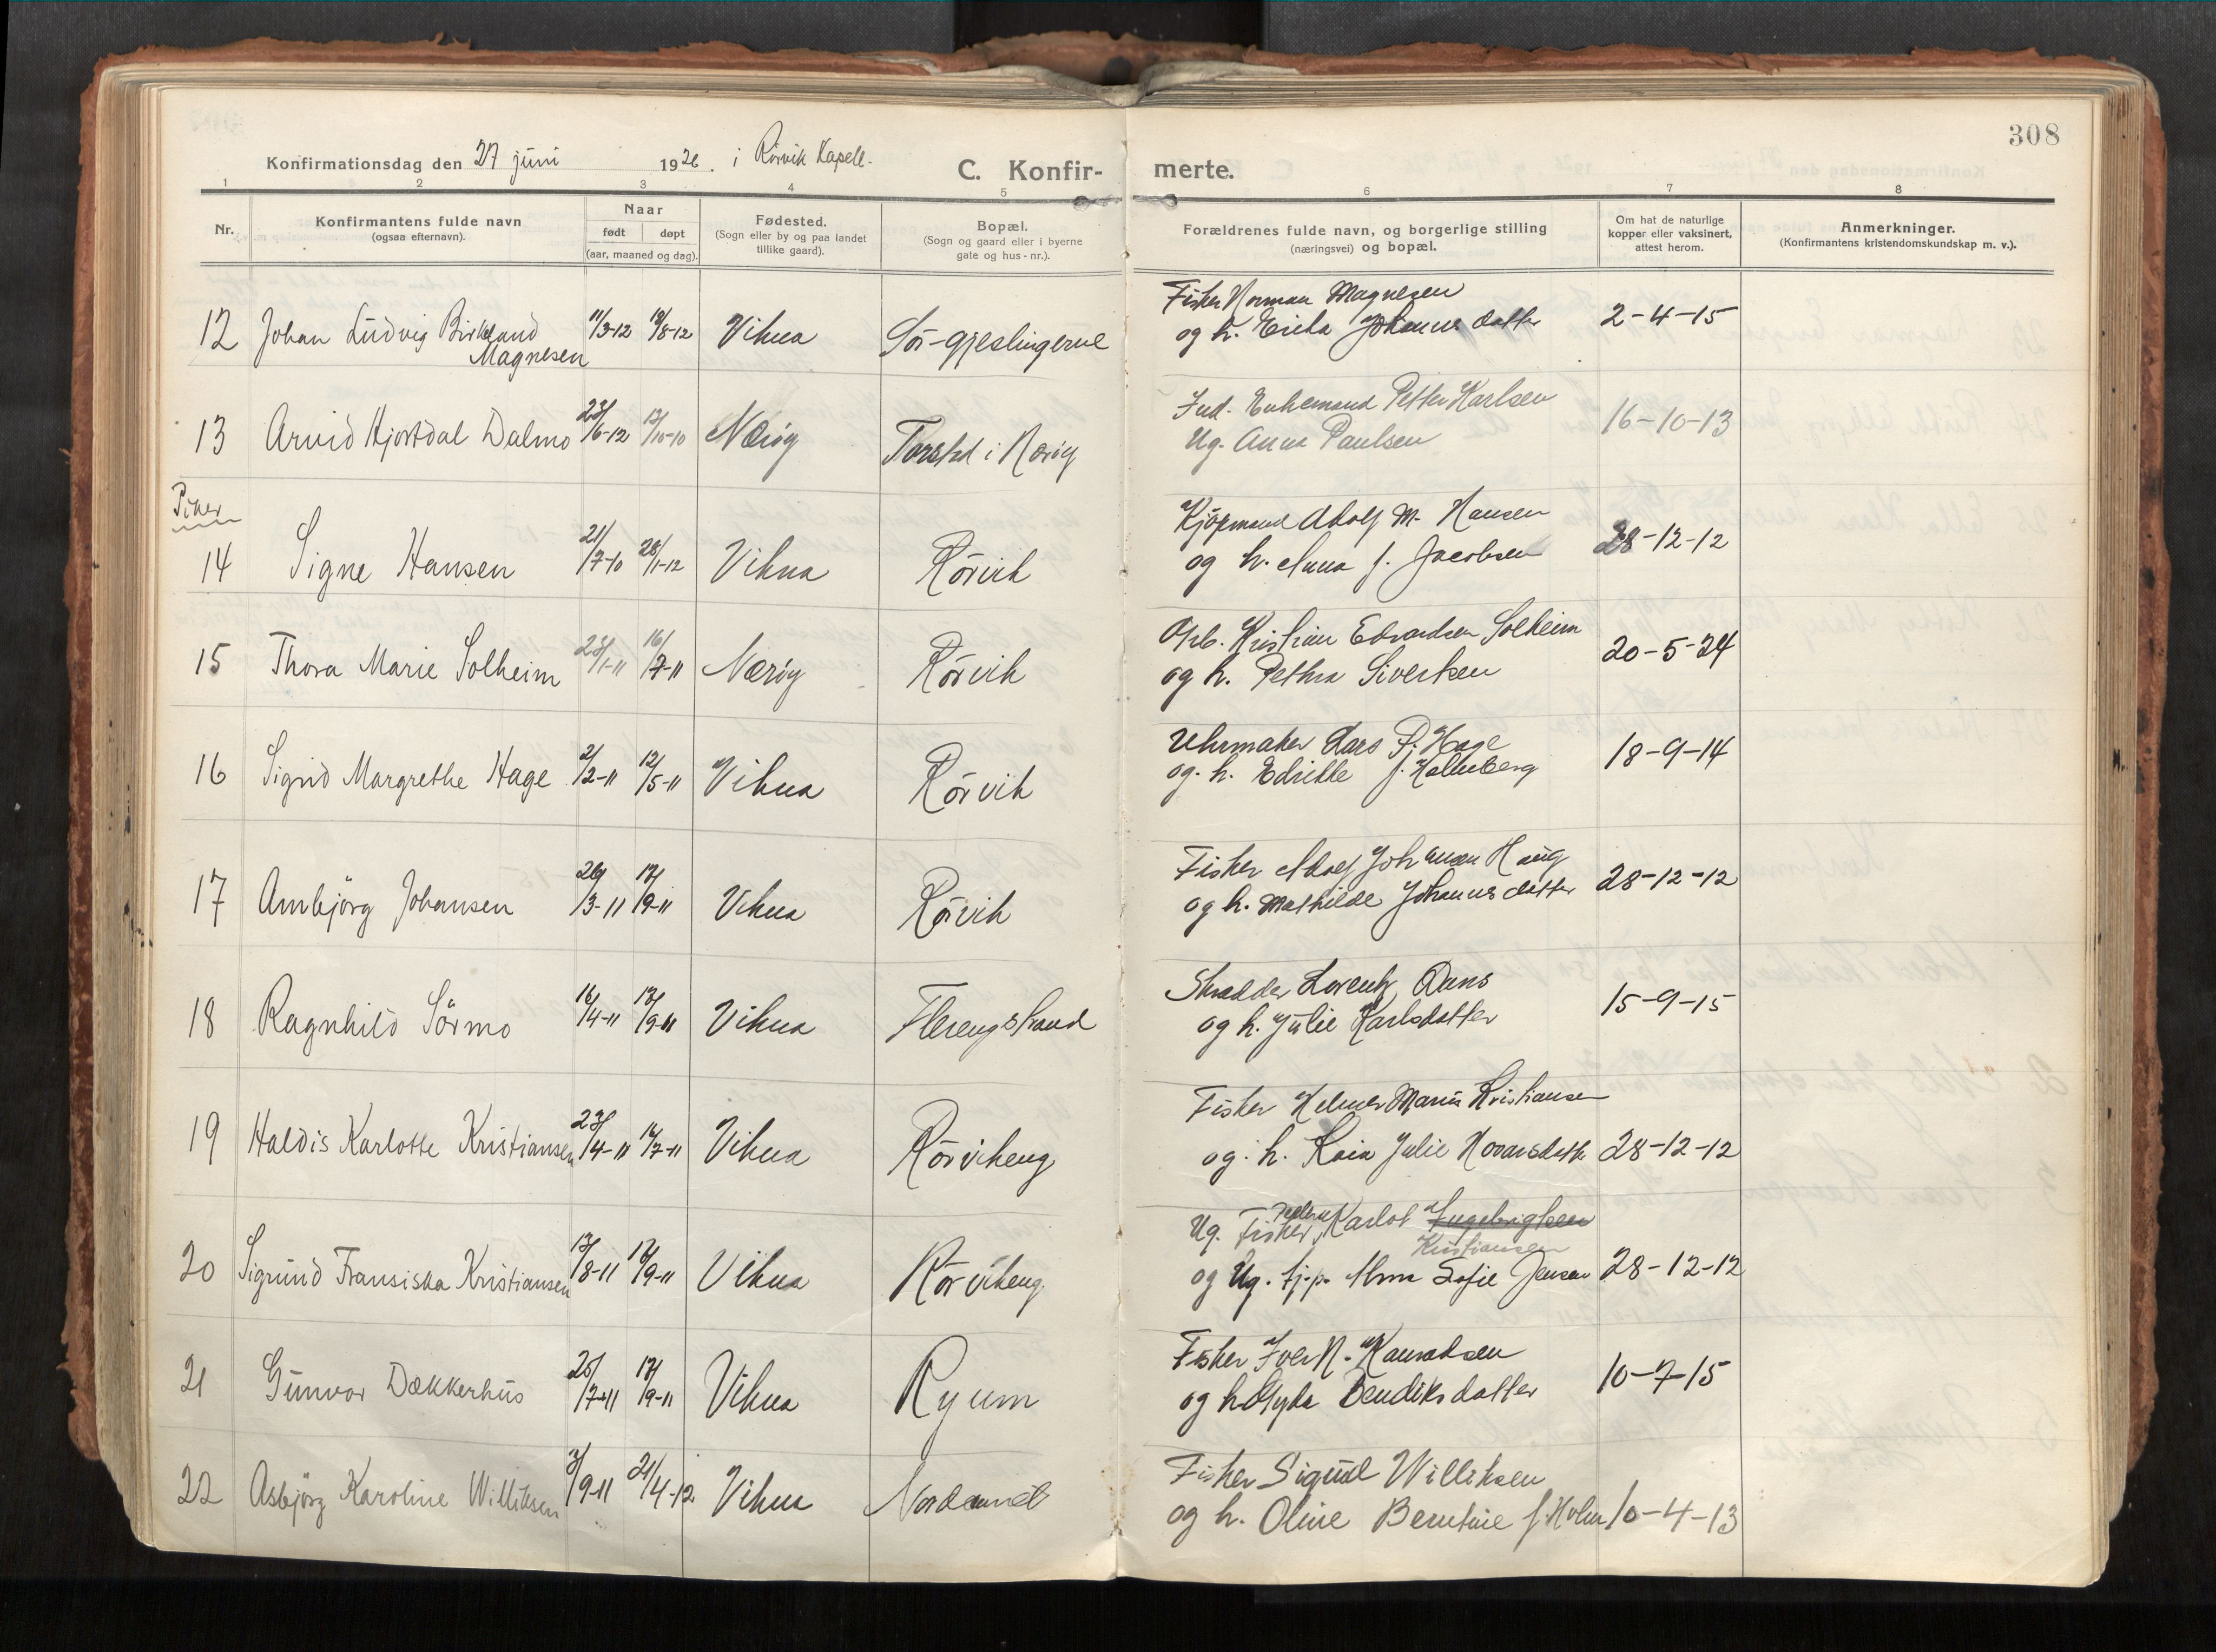 308
Konfirmationsdag den 27 juni 1926. i Rörvik Kapell.
C. Konfir- merte.
1 2 3 4 5 6 7 8
Nr.
Konfirmantens fulde navn
(ogsaa efternavn).
Naar
født døpt
(aar, maaned og dag).
Fødested.
(Sogn eller by og paa landet
tillike gaard).
Bopæl.
(Sogn og gaard eller i byerne
gate og hus-nr.).
Forældrenes fulde navn, og borgerlige stilling
(næringsvei) og bopæl.
Om hat de naturlige
kopper eller vaksinert,
attest herom.
Anmerkninger.
(Konfirmantens kristendomskundskap m. v.).
Fisker Norman Magnesen
12 Johan Ludvig Birkeland 11/3-12 18/8-12 Vikna Sör-gjeslingerne og h. Erika Johannesdatter 2-4-15
Magnesen
Ind. Enkemand Petter Karlsen
13 Arvid Hjortdal Dalmo 23/6-12 13/10-10 Næröy Torstad i Næröy Ug. Anna Paulsen 16-10-13
Piker
Kjöpmand Adolf M. Hansen
14 Signe Hansen 21/7-10 28/1-12 Vikna Rörvik og h. Anna f. Jacobsen 28-12-12
Arb. Kristian Edvardsen Solheim
15 Thora Marie Solheim 23/1-11 16/7-11 Næröy Rörvik og h. Pethra Sivertsen 20-5-24
Uhrmaker Lars P. Hage
16 Sigrid Margrethe Hage 2/2-11 12/5-11 Vikna Rörvik og h. Edrikke f. Holmberg 18-9-14
Fisker Adolf Johansen Haug
17 Arnbjörg Johansen 26/3-11 17/9-11 Vikna Rörvik og h. Mathilde Johannesdatter 28-12-12
Skradder Lorentz Duns
18 Ragnhild Sörmo 16/4-11 17/9-11 Vikna Flerengstrand og h. Julie Karlsdatter 15-9-15
Fisker Helmer Marius Kristiansen
19 Haldis Karlotte Kristiansen 23/4-11 16/7-11 Vikna Rörvikeng og h. Kaia Julie Hovarsdatter 28-12-12
Ug. Fisker Karlot Ingebrigtsen
Kristiansen
20 Sigrund Fransiska Kristiansen 13/8-11 17/9-11 Vikna Rörvikeng og Ug. tj.p. Alma Sofie Jensen 28-12-12
Fisker Iver N. Konradsen
21 Gunvor Dækkerhus 25/7-11 17/9-11 Vikna Ryum og h. Gyda Bendiksdatter 10-7-15
Fisker Sigurd Williksen
22 Asbjörg Karoline Williksen 3/9-11 21/4-12 Vikna og h. Oline Berntine f. Holm 10-4-13